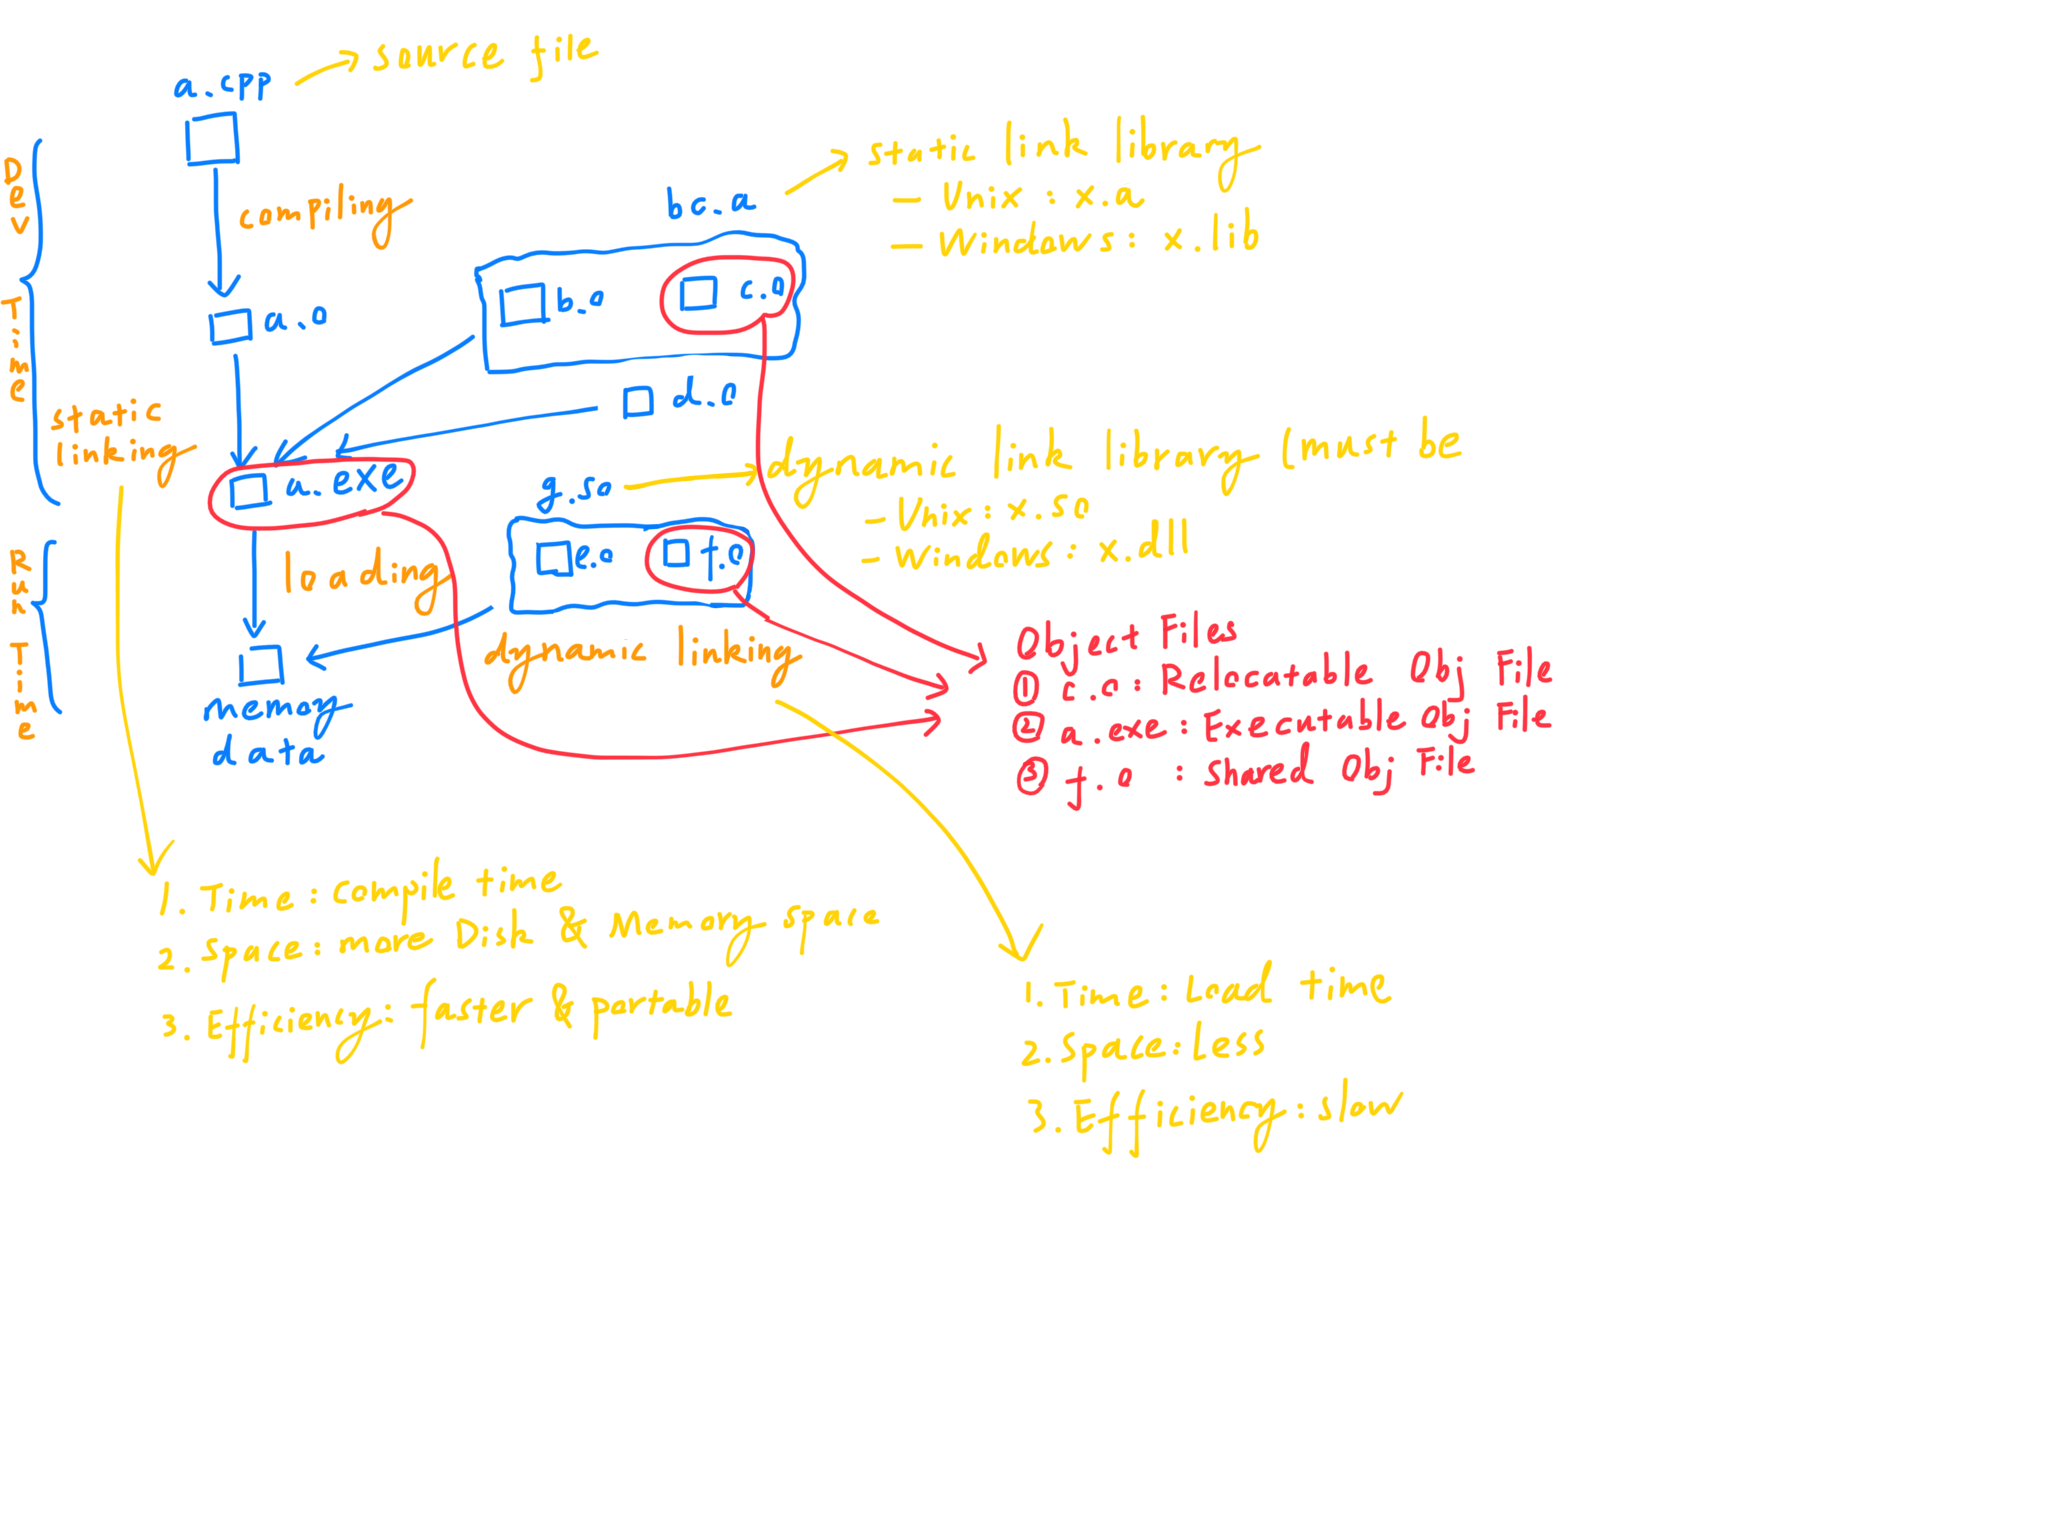 a.cpp
source file
Dev Time
compiling
bc.a
static link library
- Unix : x.a
- Windows : x.lib
a.o
b.o
c.o
d.o
static
linking
a.exe
g.so
dynamic link library (must be
- Unix : x.so
- Windows : x.dll
Run Time
loading
e.o
f.o
dynamic linking
memory
data
Object Files
① c.o : Relocatable Obj File
② a.exe : Executable Obj File
③ f.o : Shared Obj File
1. Time : compile time
2. Space : more Disk & Memory space
3. Efficiency : faster & portable
1. Time : Load time
2. Space : Less
3. Efficiency : slow